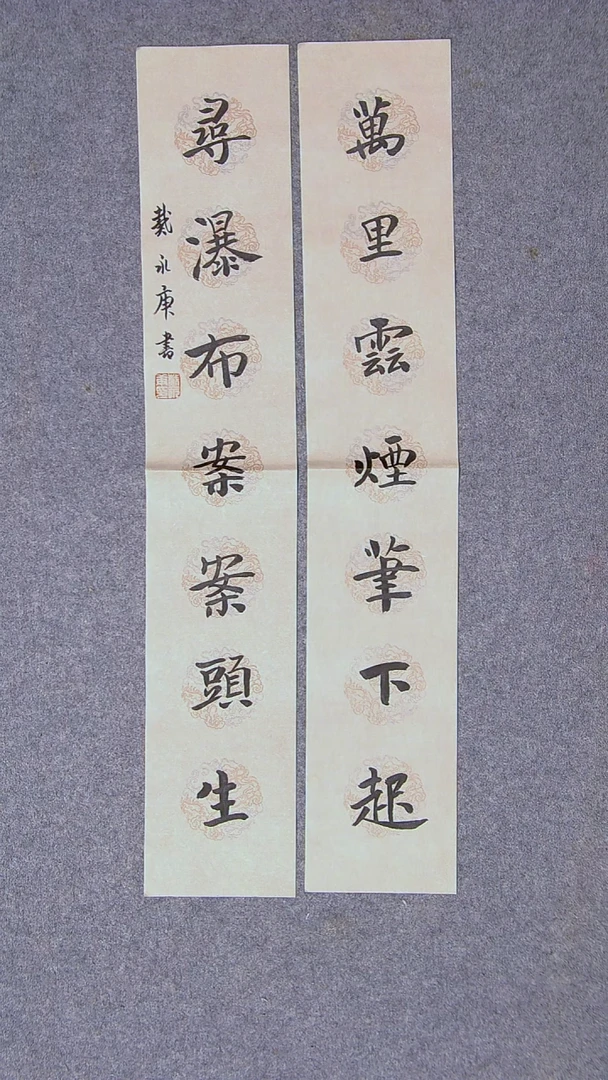 萬里雲煙筆下起
尋瀑布案案頭生
戴永庚書